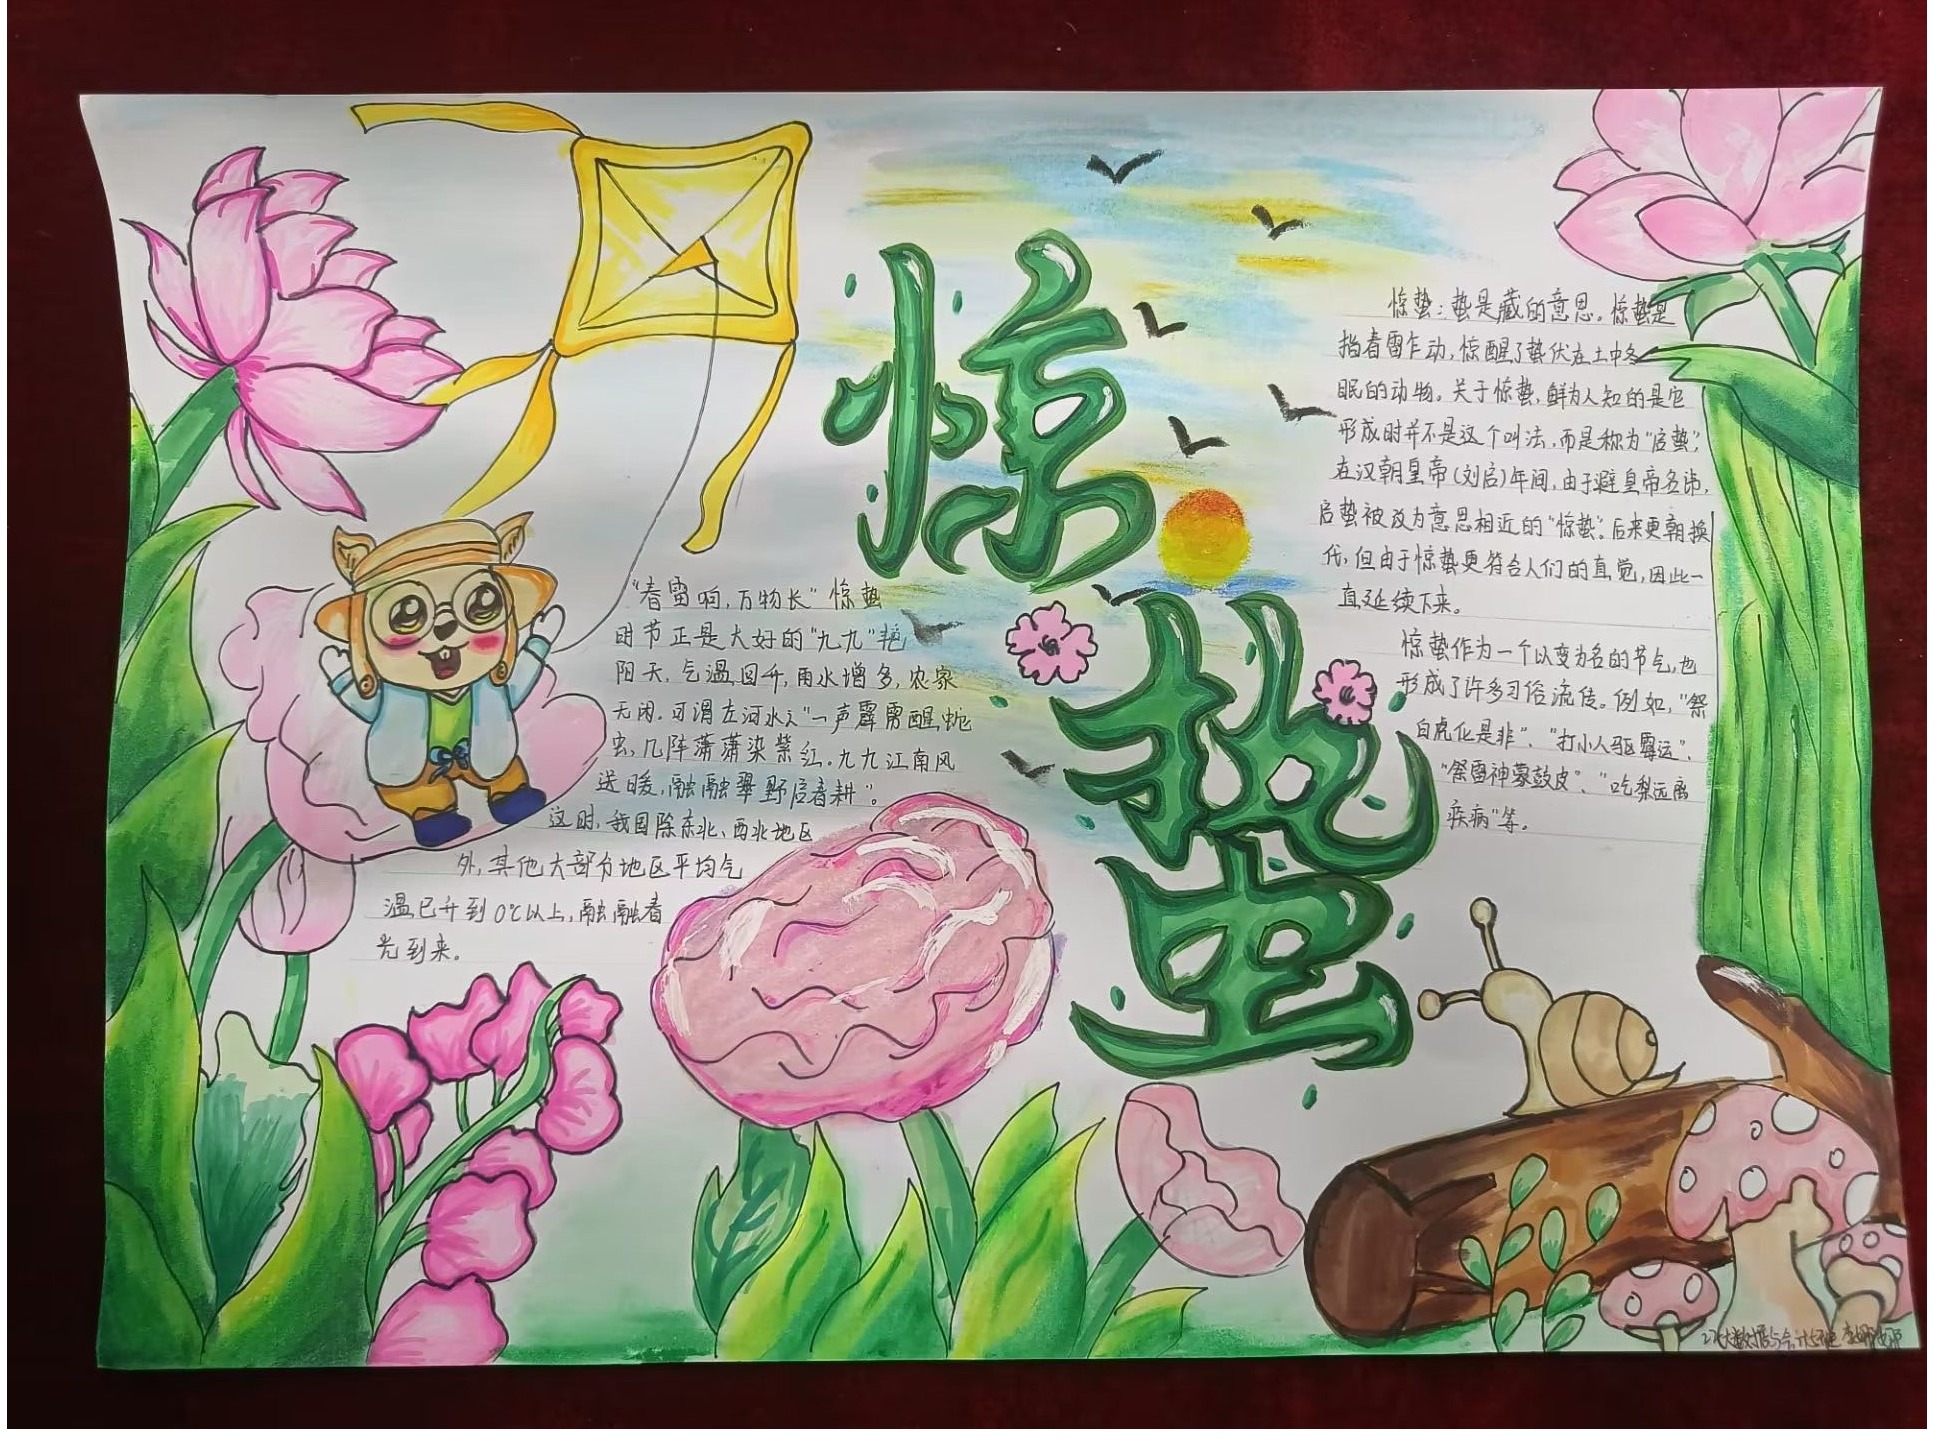 惊蛰
"春雷响,万物长"惊蛰
时节正是大好的"九九"艳
阳天,气温回升,雨水增多,农家
无闲。可谓左河水之"一声霹雳醒蛇
虫,几阵潇潇染紫红。九九江南风
送暖,融融翠野启春耕"。
这时,我国除东北、西北地区
外,其他大部分地区平均气
温已升到0℃以上,融融春
光到来。
惊蛰:蛰是藏的意思。惊蛰是
指春雷乍动,惊醒了蛰伏在土中冬
眠的动物。关于惊蛰,鲜为人知的是它
形成时并不是这个叫法,而是称为"启蛰",
在汉朝皇帝(刘启)年间,由于避皇帝名讳,
启蛰被改为意思相近的"惊蛰"。后来更朝换
代,但由于惊蛰更符合人们的直觉,因此一
直延续下来。
惊蛰作为一个以变为名的节气,也
形成了许多习俗流传。例如,"祭
白虎化是非"、"打小人驱霉运"、
"祭雷神蒙鼓皮"、"吃梨远离
疾病"等。
大数据与会计